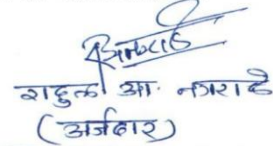 राहुल आ. नगराळे
(अर्जदार)